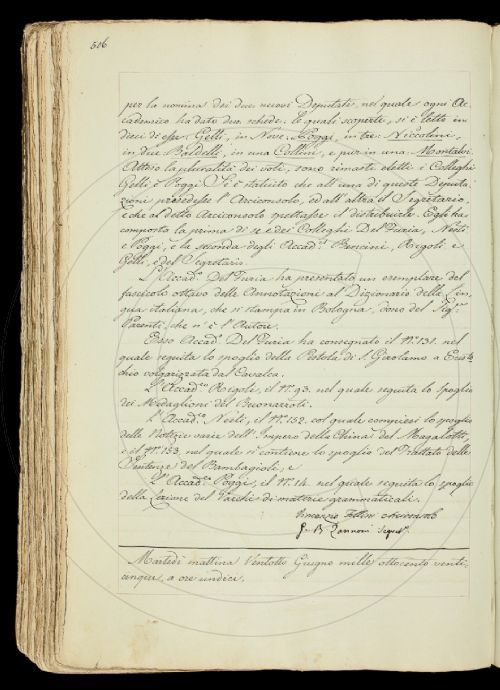 506
per la nomina dei due nuovi Deputati, nel quale ogni Ac-
cademico ha dato due schede. Le quali scoperte, si è letto in
dieci di esse Gelli, in Nove Poggi, in tre Niccolini,
in due Baldelli, in una Collini, e pur in una Montalvi.
Attesa la pluralità dei voti, sono rimasti eletti i Colleghi
Gelli e Poggi. Si è statuito che all'una di queste Deputa-
zioni presedesse l'Arciconsolo, ed all'altra il Segretario,
e che al detto Arciconsolo spettasse il distribuirle. Egli ha
composto la prima di se e dei Colleghi Del Furia, Nesti
e Poggi, e la seconda degli Accad.ci Bencini, Rigoli e
Gelli, e del Segretario.
L'Accad.co Del Furia ha presentato un esemplare del
fascicolo ottavo delle Annotazioni al Dizionario della Lin-
gua italiana, che si stampa in Bologna, dono del Sig.r
Parenti, che n'è l'Autore.
Esso Accad.co Del Furia ha consegnato il N.o 131. nel
quale seguita lo spoglio delle Pistole di S. Girolamo a Eusto-
chio volgarizzata dal Cavalca.
L'Accad.co Rigoli, il N.o 93. nel quale seguita lo spoglio
dei Medaglioni del Buonarroti.
L'Accad.co Nesti, il N.o 152. col quale compiesi lo spoglio
delle Notizie varie dell'Impero della China del Magalotti,
e il N.o 153. nel quale si contiene lo spoglio del Trattato delle
Sentenze del Bambagioli, e
L'Accad.co Poggi, il N.o 14. nel quale seguita lo spoglio
della Lezione del Varchi di materie grammaticali.
Vincenzio Follini Arciconsolo
G. B. Zannoni Segret.o
Martedì mattina Ventotto Giugno mille ottocento venti-
cinque, a ore undici.